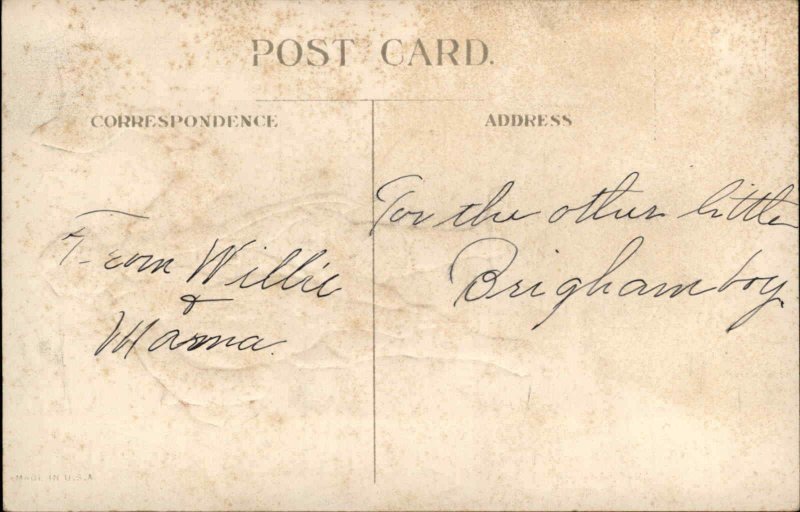 POST CARD.
CORRESPONDENCE
ADDRESS
From Willie
&
Mama.
For the other little
Brigham boy.
MADE IN U.S.A